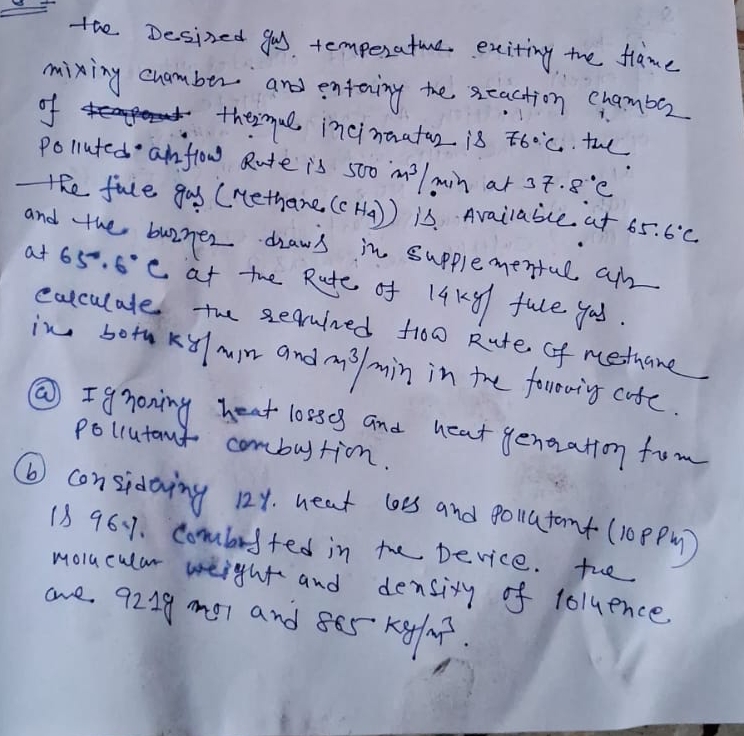 the Desired gas temperature exiting the flame
mixing chamber and entering the reaction chamber
of thermal incinerator is 760°c. the
Polluted air flow Rate is 500 m³/min at 37.8°c
the fule gas (Methane (CH4)) is Available at 65.6°c
and the burner draws in supplemental air
at 65.6°c at the Rate of 14 kg/ fule gas.
calculate the required flow Rate of methane
in both kg/min and m³/min in the following case.
(a) Ignoring heat losses and heat generation from
pollutant combustion.
(b) considering 12% heat loss and pollutant (10 PPM)
is 96% combusted in the Device. the
molucular weight and density of toluence
are 92.1g mol and 865 kg/m³.